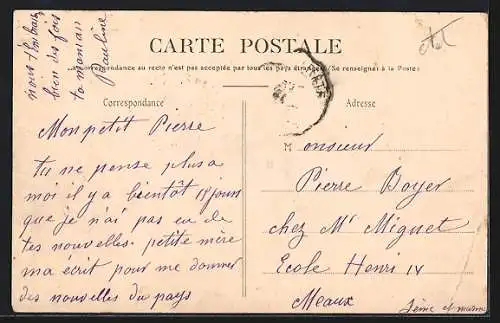 nous t'embrassons
bien des fois
ta maman
Pauline
CARTE POSTALE
La correspondance au recto n'est pas acceptée par tous les pays étrangers (Se renseigner à la Poste)
Correspondance
Adresse
Mon petit Pierre
tu ne pense plus a
moi il y a bientôt 18 jours
que je n'ai pas eu de
tes nouvelles. petite mère
m'a écrit pour me donner
des nouvelles du pays
Monsieur
Pierre Boyer
chez Mr Miguet
Ecole Henri IV
Meaux
Seine et marne